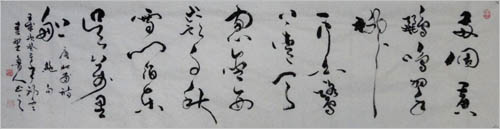 两個黄
鸝鳴翠
柳一
行白鷺
上青天
窗含西
嶺千秋
雪門泊東
吳萬里
船
杜甫詩
絕句